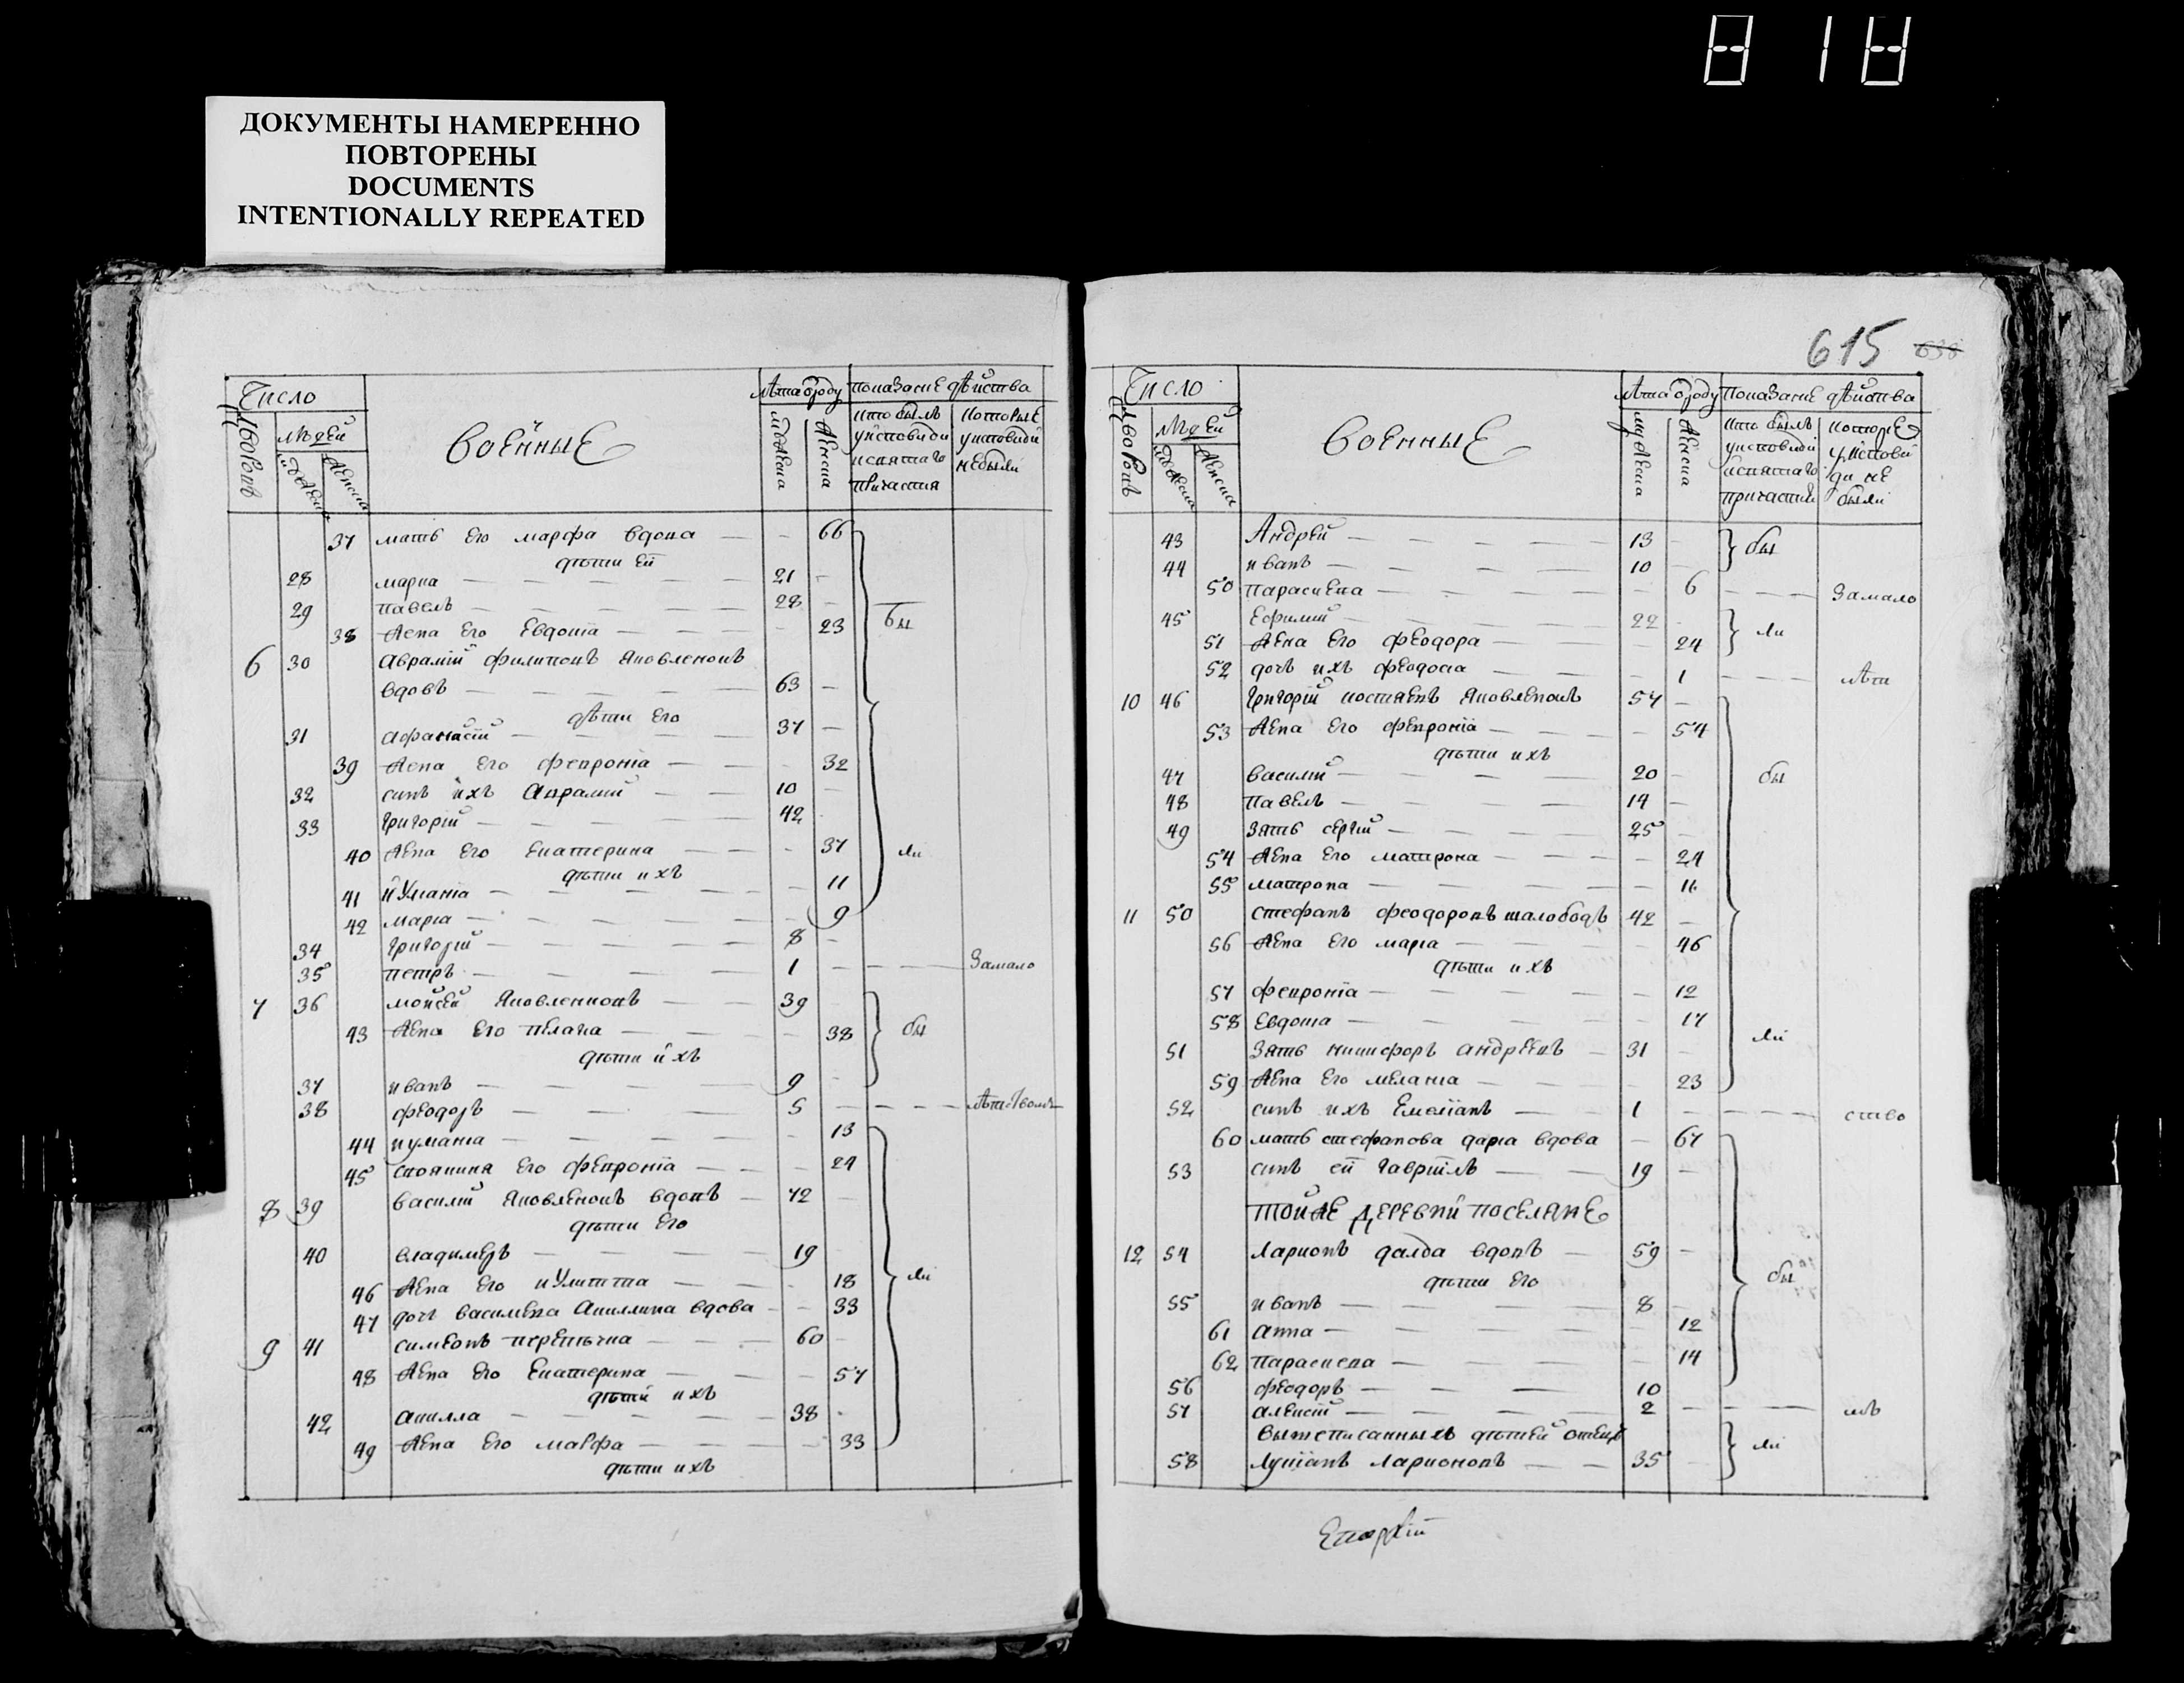 818
ДОКУМЕНТЫ НАМЕРЕННО
ПОВТОРЕНЫ
DOCUMENTS
INTENTIONALLY REPEATED
Число
Дворовъ
людей
мужеска
женска
военные
лѣта ѿ роду
мужеска
женска
показание дѣйства
кто былъ у исповѣди и святаго причастия
которые у исповѣди небыли
37 мать его марфа вдова — — 66
дѣти ей
28 марка — 21 —
29 павелъ — 28 —
38 жена его Евдокїа — — 23 бы
6 30 аврамїй филиповъ яковленковъ
вдовъ — 63 —
дѣти его
31 афанасїй — 37 —
39 жена его феврония — — 32
32 синъ ихъ Аврамїй — 10 —
33 григорїй — 42
40 жена его Екатерина — — 37 ли
дѣти ихъ
41 иулианїа — — 11
42 марїа — — 9
34 григорїй — 8 —
35 петръ — 1 — замало
7 36 мойсей яковленковъ — 39
43 жена его пелагиа — — 38 бы
дѣти ихъ
37 иванъ — 9 —
38 феодоръ — 5 —
44 иулианиа — — 13
45 своячина его феврония — — 27
8 39 василїй яковленковъ вдовъ — 72 —
дѣти его
40 владимеръ — 19
46 жена его иулитта — — 18 ли
47 дочь василиева акиллина вдова — — 33
9 41 симеонъ — 60 —
48 жена его Екатерина — — 57
дѣтий ихъ
42 акилла — 38 -
49 жена его марфа — — 33
дѣти ихъ
615 638
Число
Дворовъ
людей
мужеска
женска
военные
лѣта ѿ роду
мужеска
женска
показание дѣйства
кто былъ у исповѣди и святаго причастия
которие у исповѣди не были
43 Андрей — 13 — бы
44 иванъ — 10 —
50 параскева — — 6 — замало
45 Ефимий — 22 —
51 жена его феодора — — 24 ли
52 дочь ихъ феодосиа — — 1 — лѣт
10 46 григорїй костаевъ яковлевовъ 57 —
53 жена его феврония — — 54
дѣти ихъ
47 василїй — 20 — бы
48 павелъ — 14 —
49 зять сергїй — 25 —
54 жена его матрона — — 27
55 матрона — — 11
11 50 стефанъ феодоровъ шалободъ 42 —
56 жена его мариа — — 46
дѣти ихъ
57 феврония — — 12
58 Евдокиа — — 17
51 зять никифоръ андреевъ — 31 — ли
59 жена его меланиа — — 23
52 синъ ихъ Емелїанъ — 1 — ство
60 мать стефанова дариа вдова — 67
53 синъ ей гаврїилъ — 19 —
тойже деревни поселяне
12 54 ларионъ далда вдовъ — 59 —
дѣти его бы
55 иванъ — 8
61 анна — — 12
62 параскева — — 14
56 феодоръ — 10
57 алексїй — 2 —
вышеписанныхъ дѣтей отецъ ли
58 лукїанъ ларионовъ — 35 —